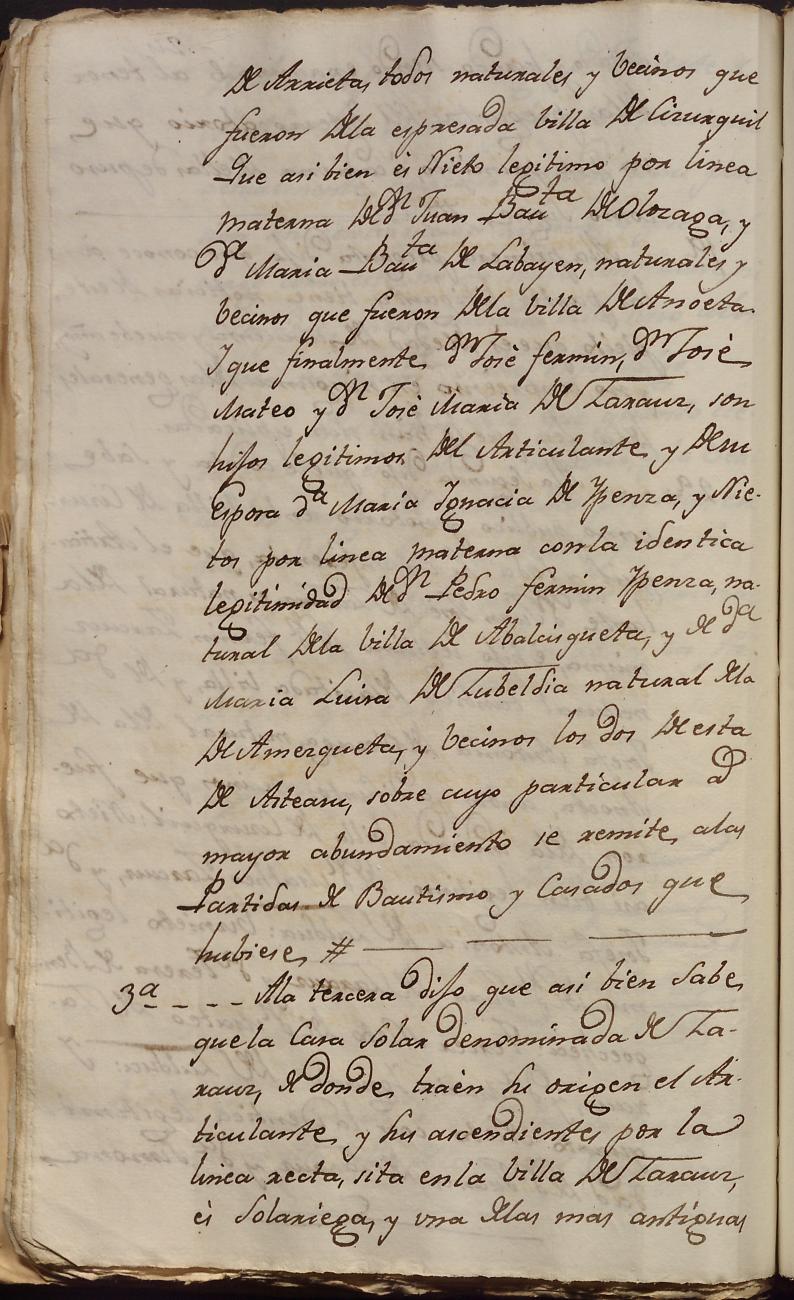 De Arrieta, todos naturales y becinos que
fueron Dela espresada billa De Cizurquil
Que asi bien és Nieto legitimo por linea
materna De dn Juan Bauta De Olozaga, y
Da Maria Bauta De Labayen, naturales y
becinos que fueron Dela billa De Anoeta.
Y que finalmente dn José fermin, dn José
Mateo y dn José Maria De Zarauz, son
hijos legitimos Del Articulante y De su
Esposa da Maria Ygnacia De Ypenza, y Nie-
tos por linea materna con la identica
legitimidad De dn Pedro fermin Ypenza, na-
tural Dela billa De Abalcisqueta, y de da
Maria Luisa De Zubeldia natural dela
De Amezqueta, y becinos los dos De esta
De Asteasu, sobre cuyo particular ad
mayor abundamiento se remite alas
Partidas de Bautismo y Casados que
hubiese #
3a - - - Ala tercera dijo que asi bien Sabe
que la Casa Solar denominada de Za-
rauz, de donde traén su origen el Ar-
ticulante y sus ascendientes por la
linea recta, sita en la billa De Zarauz,
és Solariega, y una delas mas antiguas